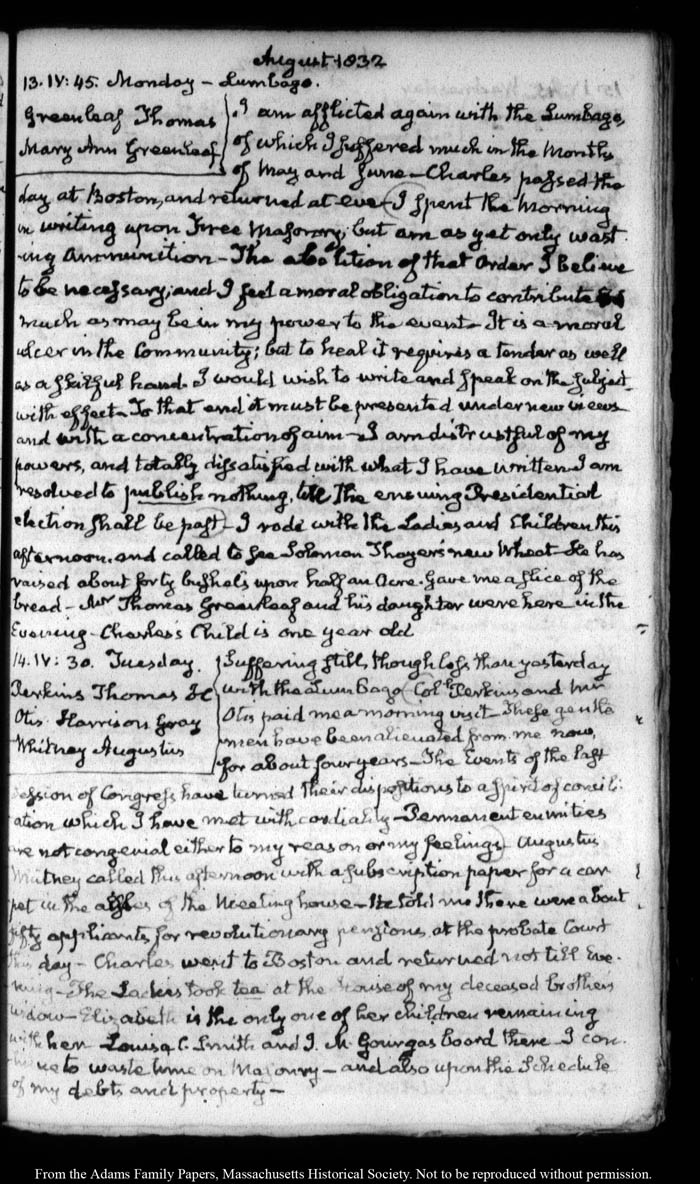 August 1832
13. IV: 45. Monday - Lumbago.
Greenleaf Thomas
Mary Ann Greenleaf
I am afflicted again with the Lumbago,
of which I suffered much in the Months
of May and June - Charles passed the
day at Boston, and returned at eve - I spent the Morning
in writing upon Free Masonry; but am as yet only wast-
ing Ammunition - The abolition of that Order I believe
to be necessary; and I feel a moral obligation to contribute as
much as may be in my power to the event - It is a moral
ulcer in the Community; but to heal it requires a tender as well
as a skilful hand. I would wish to write and speak on the subject
with effect - To that end it must be presented under new views
and with a concentration of aim - I am distrustful of my
powers, and totally dissatisfied with what I have written. I am
resolved to publish nothing, till the ensuing Presidential
election shall be past - I rode with the Ladies and Children this
afternoon, and called to see Solomon Thayer's new Wheat - He has
raised about forty bushels upon half an Acre. Gave me a slice of the
bread - Mr Thomas Greenleaf and his daughter were here in the
Evening - Charles's Child is one year old
14. IV: 30. Tuesday.
Perkins Thomas H
Otis Harrison Gray
Whitney Augustus
Suffering still, though less than yesterday
with the Lumbago. Coll. Perkins and Mr
Otis paid me a morning visit - These gentle
men have been alienated from me now,
for about four years - The Events of the last
Session of Congress have turned their dispositions to a spirit of concili-
ation which I have met with cordiality - Permanent enmities
are not congenial either to my reason or my feelings - Augustus
Whitney called this afternoon with a subscription paper for a car
pet in the aisles of the Meeting house - He told me there were about
fifty applicants for revolutionary pensions, at the probate Court
this day - Charles went to Boston and returned not till Eve-
ning - The Ladies took tea at the house of my deceased brothers
widow - Elizabeth is the only one of her children remaining
with her - Louisa C. Smith and J. M. Gourgas board there - I con-
tinue to waste time on Masonry - and also upon the Schedule
of my debts and property -
From the Adams Family Papers, Massachusetts Historical Society. Not to be reproduced without permission.